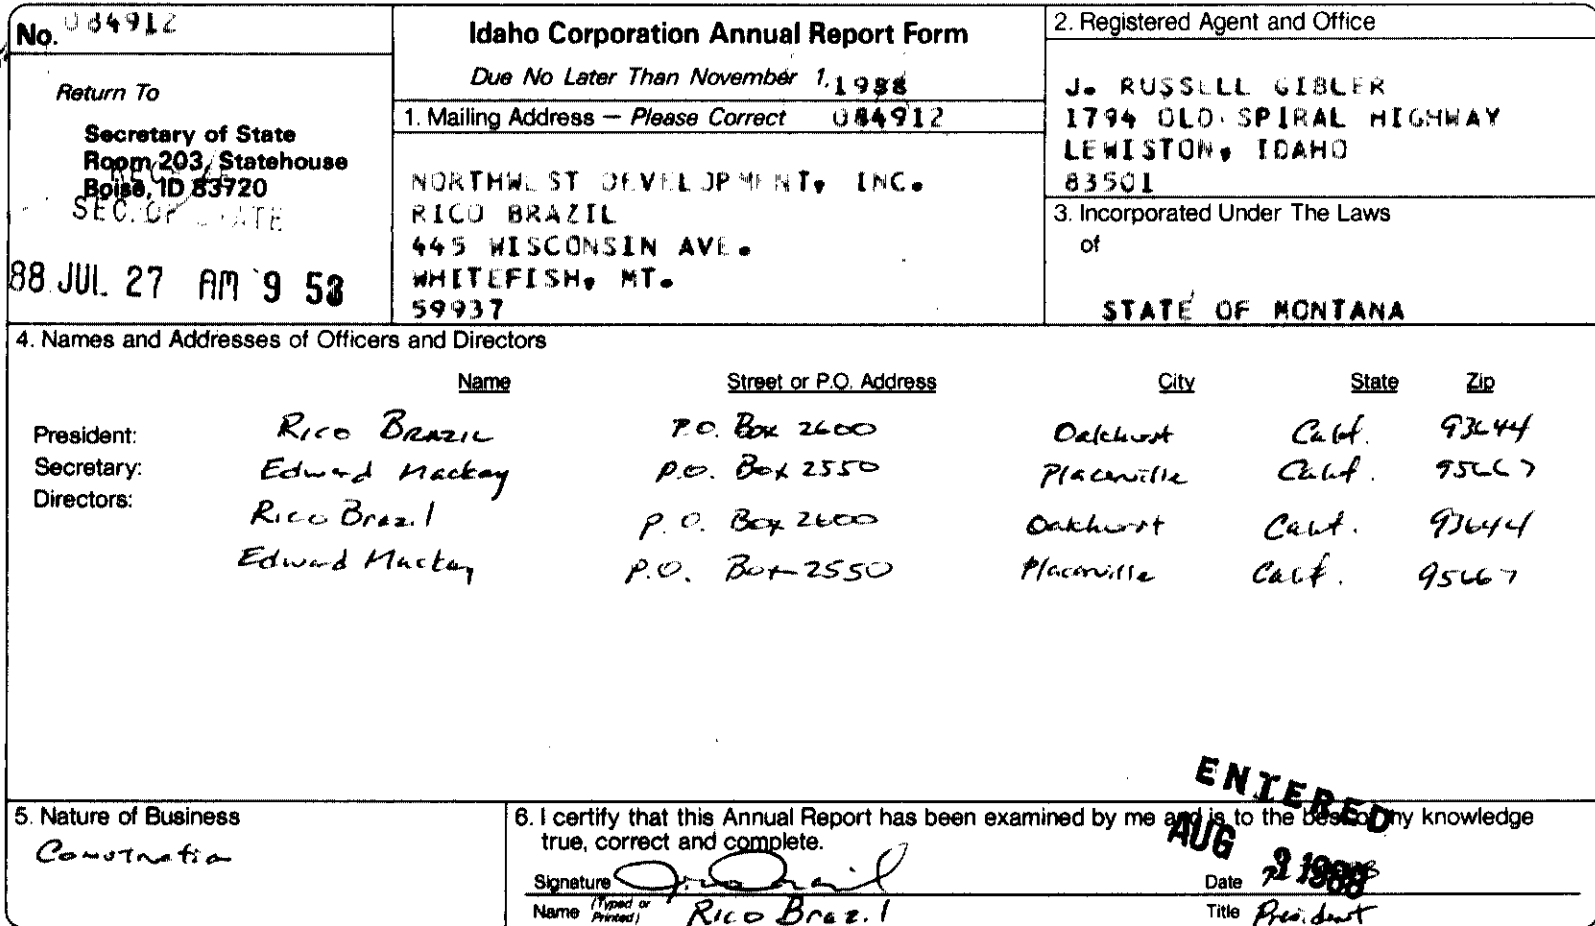 No. 084912
Return To
Secretary of State
Room 203, Statehouse
Boise, ID 83720
SEC. OF STATE
88 JUL 27 AM 9 53
Idaho Corporation Annual Report Form
Due No Later Than November 1, 1988
1. Mailing Address — Please Correct 084912
NORTHWEST DEVELOPMENT, INC.
RICO BRAZIL
445 WISCONSIN AVE.
WHITEFISH, MT.
59937
2. Registered Agent and Office
J. RUSSELL GIBLER
1794 OLD SPIRAL HIGHWAY
LEWISTON, IDAHO
83501
3. Incorporated Under The Laws
of
STATE OF MONTANA
4. Names and Addresses of Officers and Directors
Name Street or P.O. Address City State Zip
President: Rico Brazil P.O. Box 2600 Oakhurst Calif. 93644
Secretary: Edward Mackay P.O. Box 2550 Placerville Calif. 95667
Directors: Rico Brazil P.O. Box 2600 Oakhurst Calif. 93644
Edward Mackay P.O. Box 2550 Placerville Calif. 95667
5. Nature of Business
Construction
6. I certify that this Annual Report has been examined by me and is to the best of my knowledge
true, correct and complete.
ENTERED
AUG 1988
Signature Date
Name (Typed or Printed) Rico Brazil Title President